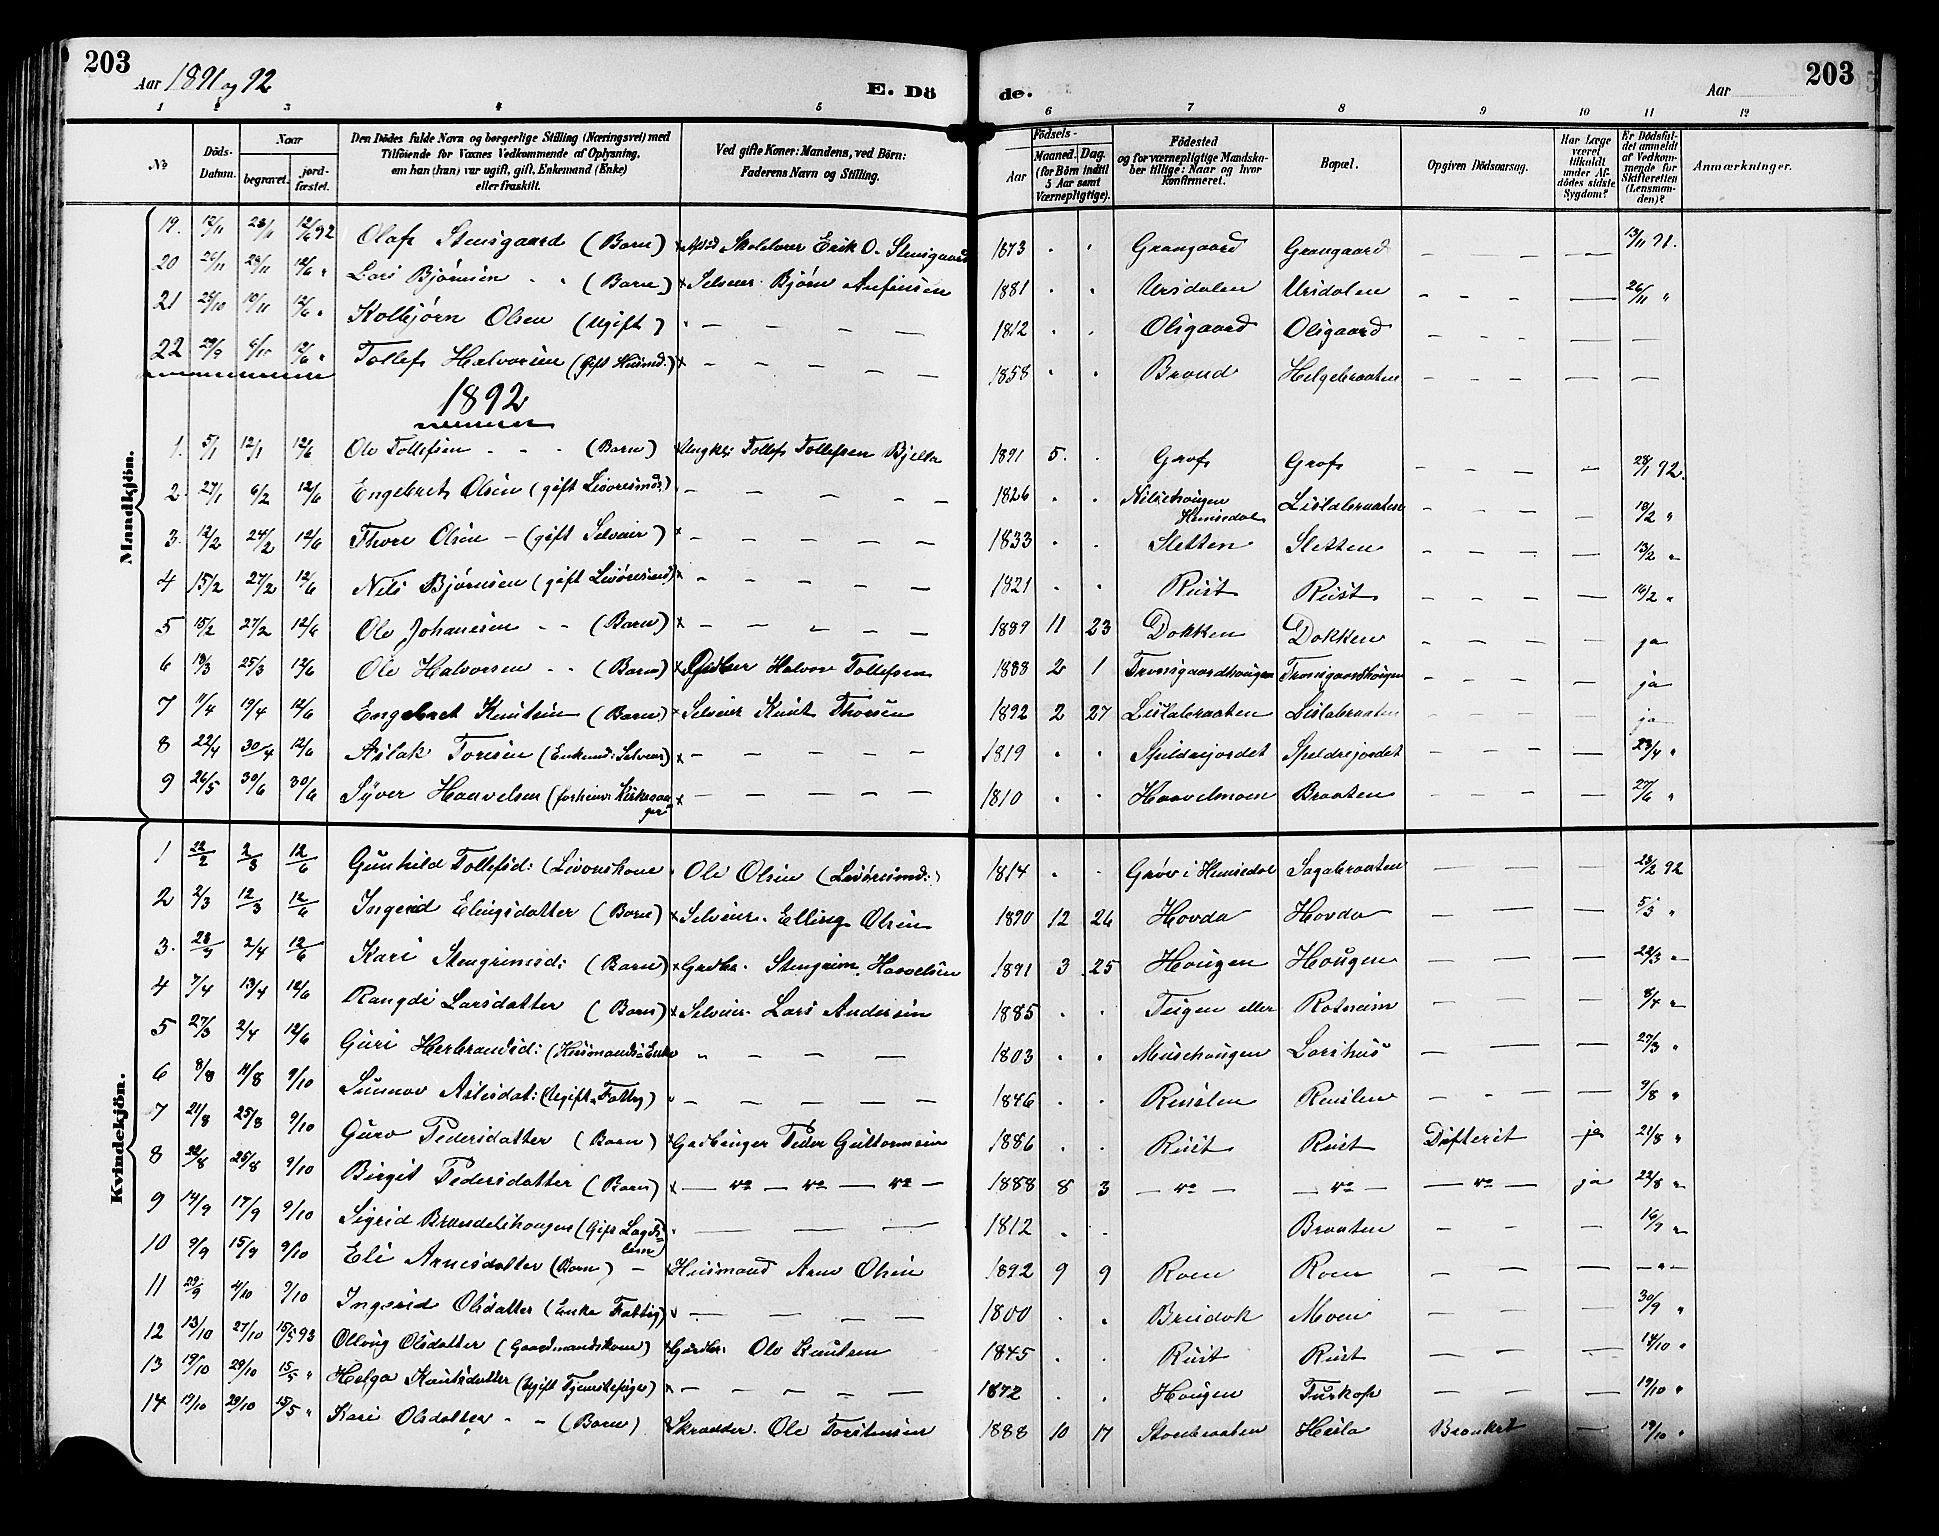 203
Aar 1891 og 92
E. Döde.
Aar
203
1 2 3 4 5 6 7 8 9 10 11 12
No
Döds-Datum.
Naar begravet. jord-fæstet.
Den Dödes fulde Navn og borgerlige Stilling (Næringsvei) med Tilföiende for Voxnes Vedkommende af Oplysning, om han (hun) var ugift, gift, Enkemand (Enke) eller fraskilt.
Ved gifte Koner: Mandens, ved Börn: Faderens Navn og Stilling.
Födsels-
Aar
Maaned. Dag. (for Börn indtil 5 Aar samt Værnepligtige).
Födested og for værnepligtige Mandskaber tillige: Naar og hvor Konfirmeret.
Bopæl.
Opgiven Dödsaarsag.
Har Læge været tilkaldt under Afdödes sidste Sygdom?
Er Dödsfaldet anmeldt af Vedkommende for Skifteretten (Lensmanden)?
Anmærkninger.
Mandkjön.
19. 12/11 28/11 12/6 92 Olaf Stensgaard (Barn) Skolelærer Erik O. Stensgaard 1873 . . Grangaard Grangaard – – – — 13/11 91.
20 26/11 28/11 12/6 " Lars Bjørnsen - - (Barn) x Selveier Bjørn Anfinsen 1881 . . Ursdalen Ursdalen – – – — 26/11 "
21 25/10 19/11 12/6 " Kolbjørn Olsen (Ugift) – – – – 1812 . . Olsgaard Olsgaard – – – — —
22 29/9 9/10 12/6 " Tollef Halvorsen (Gift Husmd.) x – – – – 1858 . . Brand Helgebraaten – – – — —
1892
1. 5/1 12/1 12/6 Ole Tollefsen - - - (Barn) x Ungkl: Tollef Tollefsen Bjella 1891 5. . Grøf Grøf – – – – 28/1 92.
2. 27/1 6/2 12/6 Engebret Olsen (gift Livøresmd:) – – – – 1826 . . Nilsehougen Hemsedal Lislabraaten – – – – 10/2 "
3. 12/2 24/2 12/6 Thore Olsen – (gift Selveier) x – – – – 1833 . . Sletten Sletten – – – – 13/2 "
4 15/2 27/2 12/6 Nils Bjørnsen (gift Livøresmd) x – – – – 1821 . . Rust Rust – – – — 16/2 "
5 15/2 27/2 12/6 Ole Johanesen - - (Barn) x – – – – 1889 11 23 Dokken Dokken – – – — ja
6 18/3 25/3 12/6 Ole Halvorsen - - (Barn) x Gbr Halvor Tollefsen 1888 2 1 Tronsgaardhougen Tronsgaardhougen – – – — ja
7 11/4 19/4 12/6 Engebret Knutsen (Barn) x Selveier Knut Thorsen 1892 2 27 Lislabraaten Lislabraaten – – – — ja
8 22/4 30/4 12/6 Aslak Toresen (Enkemd: Selveier) x – – – – 1819 . . Speldrejordet Speldrejordet – – – — 23/4 "
9 26/5 30/6 30/6 Syver Haavelsen (forhenv: Kirkesanger) x – – – – 1810 . . Haavelmoen Braaten – – – — 27/6 "
Kvindekjön.
1 22/2 2/3 12/6 Gunhild Tollefsd: (Livørskone " Ole Olsen (Livøresmd:) 1814 . . Grøv i Hemsedal Sagabraaten – – – — 23/2 92
2 2/3 12/3 12/6 Ingerid Elingsdatter (Barn) x Selveier. Elling Olsen 1890 12 26 Hovda Hovda – – – — 5/3 "
3. 28/3 2/4 12/6 Kari Stengrimsd: (Barn) x Gardbr. Stengrim Haavelsen 1891 3 25 Hougen Hougen – – – — 22/3 "
4 7/4 13/4 12/6 Rangdi Larsdatter (Barn) x Selveier Lars Andersen 1885 . . Teigen eller Rotneim – – – — 8/4 "
5 27/3 2/4 12/6 Guri Herbrandsd: (Husmands Enke " – – – 1803 . . Musehougen Larshus – — — 27/3 "
6 8/8 11/8 9/10 Sunnov Aslesdat: (Ugift Fattig) – – – – 1846 . . Ruslen Ruslen – – – — 9/8 "
7 21/8 25/8 9/10 Guro Pedersdatter (Barn) Gardbruger Peder Guttormsen 1886 . . Rust Rust Difterit ja 21/8 "
8 22/8 25/8 9/10 Birgit Pedersdatter (Barn) x – 4o – 4o – 4o – 1888 8 3 – 4o – – 4o – – 4o – ja 22/8 "
9 14/9 17/9 9/10 Sigrid Brandelshougen (Gift Lagdslem) – – – 1812 . . Braaten – – — 16/9 "
10 9/9 15/9 9/10 Eli Arnesdatter (Barn) – x Husmand Arne Olsen 1892 9 9 Roen Roen – – – — – " –
11 29/9 4/10 9/10 Ingerid Olsdatter (Enke Fattig) – – – 1800 . . Brudok Moen – – – — 30/9 "
12 13/10 27/10 15/5 93 Olloug Olsdatter (Gaardmandskone) Gardbr. Ole Knutsen 1845 . . Rust Rust – – – — 14/10 "
13 19/10 29/10 15/5 " Helga Knutsdatter (Ugift Tjenestepige) x – – – – 1872 . . Hougen Turkop – – – — 19/10 "
14 19/10 29/10 15/5 " Kari Olsdatter - - (Barn) Skrædder. Ole Torstensen 1888 10 17 Storebraaten Hesla Bronkit — 19/10 "